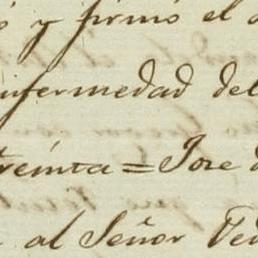 y firmó el
enfermedad del
treinta = Jose
al Señor